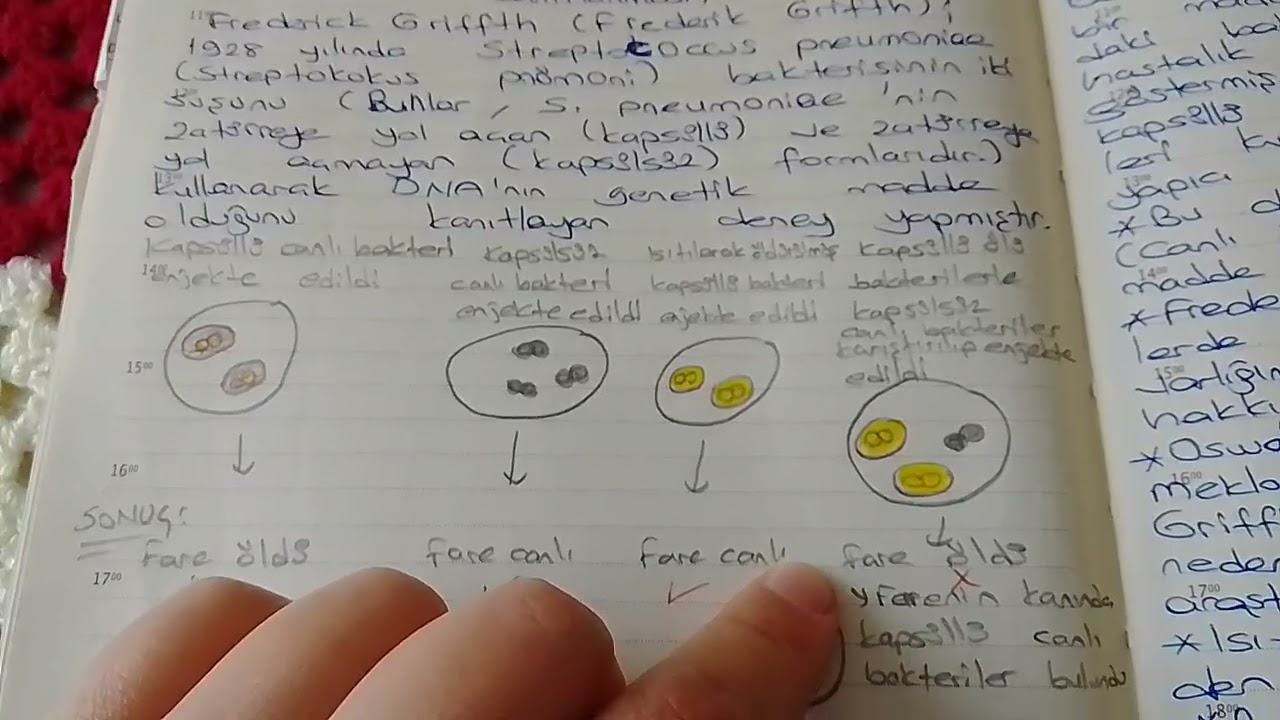 Fredrick Griffth (Frederik Griffth),
1928 yılında Streptococcus pneumoniae
(Streptokokus pnömoni) bakterisinin iki
suşunu (Bunlar, S. pneumoniae 'nin
zatürreye yol açan (kapsüllü) ve zatürreye
yol açmayan (kapsülsüz) formlarıdır.)
kullanarak DNA'nın genetik madde
olduğunu kanıtlayan deney yapmıştır.
Kapsüllü canlı bakteri
enjekte edildi
kapsülsüz
canlı bakteri
enjekte edildi
Isıtılarak öldürülmüş
kapsüllü bakteri
ejekte edildi
kapsüllü ölü
bakterilerle
kapsülsüz
canlı bakteriler
karıştırılıp enjekte
edildi
15⁰⁰
16⁰⁰
SONUÇ:
Fare öldü
Fare canlı
Fare canlı
fare öldü
17⁰⁰
Farenin kanında
kapsüllü canlı
bakteriler bulundu
bir
daki
hastalık
göstermiş
kapsüllü
leri
yapıcı
*Bu
(Canlı
14⁰⁰
madde
*Frede
lerde
15⁰⁰
varlığın
hakkı
*Oswa
16⁰⁰
meklo
Griff
neden
17⁰⁰
araşt
*Isı-
den
18⁰⁰